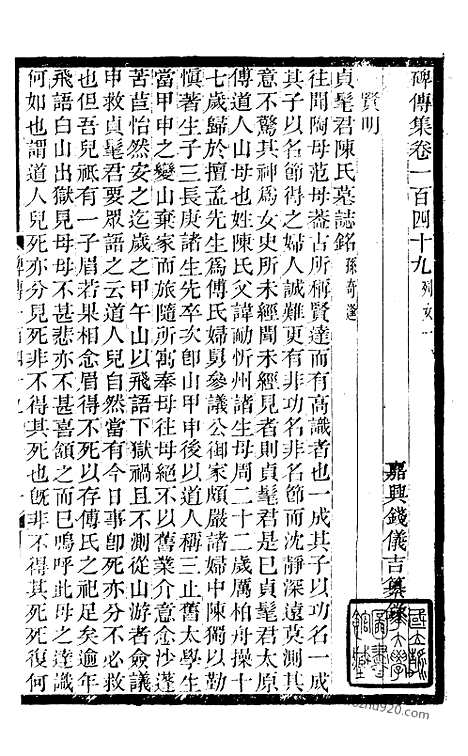 碑傳集卷一百四十九 列女一
嘉興錢儀吉纂錄
賢明
貞髦君陳氏墓誌銘 孫奇逢
往聞陶母范母葢古所稱賢達而有高識者也一成其子以功名一成
其子以名節得之婦人誠難更有非功名非名節而沈靜深遠莫測其
意不驚其神爲女史所未經聞未經見者則貞髦君是已貞髦君太原
傅道人山母也姓陳氏父諱勔忻州諸生母周二十二歲厲柏舟操十
七歲歸於擅孟先生爲傅氏婦舅參議公御家頗嚴諸婦中陳獨以勤
愼著生子三長庚諸生先卒次卽山甲申後以道人稱三止舊太學生
當甲申之變山棄家而旅隨所寓奉母往母絕不以舊業介意念沙蓬
苦苣怡然安之迄歲之甲午山以飛語下獄禍且不測從山游者僉議
申救貞髦君要眾語之云道人兒自然當有今日事卽死亦分不必救
也但吾兒祗有一子眉若果相念眉得不死以存傅氏之祀足矣逾年
飛語白山出獄見母母不甚悲亦不甚喜頷之而已嗚呼此母之達識
何如也謂道人兒死亦分見死非不得其死也旣非不得其死死復何